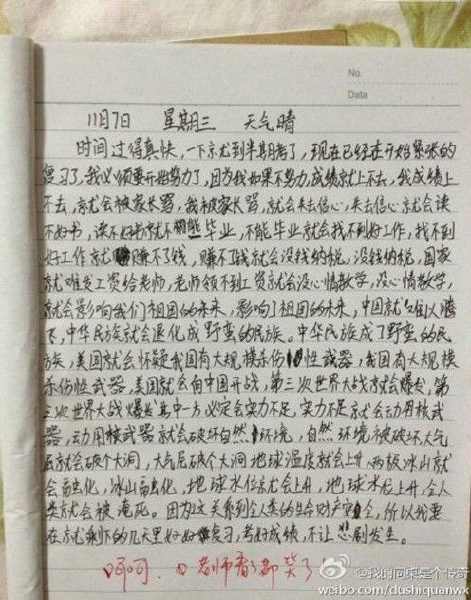 No.
Data
11月7日 星期三 天气晴
时间过得真快,一下就到半期考了,现在已经在开始紧张的
复习了,我必须要开始努力了,因为我如果不努力,成绩就上不去,我成绩上
不去,就会被家长骂,我被家长骂,就会失去信心,失去信心就会读
不好书,读不好书就不能毕业,不能毕业就会找不到好工作,找不到
好工作就赚不了钱,赚不了钱就会没钱纳税,没钱纳税,国家
就难发工资给老师,老师领不到工资就会没心情教学,没心情教学,
就会影响我们祖国的未来,影响了祖国的未来,中国就难以腾
飞,中华民族就会退化成野蛮的民族。中华民族成了野蛮的民
族,美国就会怀疑我国有大规模杀伤性武器,我国有大规模
杀伤性武器,美国就会向中国开战,第三次世界大战就会爆发,第
三次世界大战爆发其中一方必定会实力不足,实力不足就会动用核武
器,动用核武器就会破坏自然环境,自然环境被破坏大气
层就会破个大洞,大气层破个大洞地球温度就会上升,两极冰山就
会融化,冰山融化,地球水位就会上升,地球水位上升,全人
类就会被淹死。因为这关系到全人类的生命财产安全,所以我要
在就剩下的几天里好好复习,考好成绩,不让悲剧发生。
呵呵. 老师看了都笑了
@我的同桌是个传奇
weibo.com/dushiquanwx